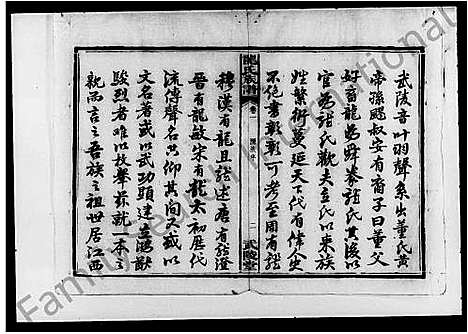 武陵音叶羽聲系出董氏黃
帝孫颺叔安有裔子曰董父
好畜龍為舜豢龍氏其後以
官為龍氏歡夫立氏以來族
姓繁衍蔓延天下代有偉人史
不絕書彰彰可考至周有龍
龍氏族譜
卷一
二
武陵堂
穆漢有龍且龍述唐有龍澄
晉有龍敏宋有龍太初歷代
流傳聲名共仰其間或以
文名著或以武功顯建立鴻猷
駿烈者難以枚舉茲就一本之
親而言之吾族之祖世居江西
FamilySearch International